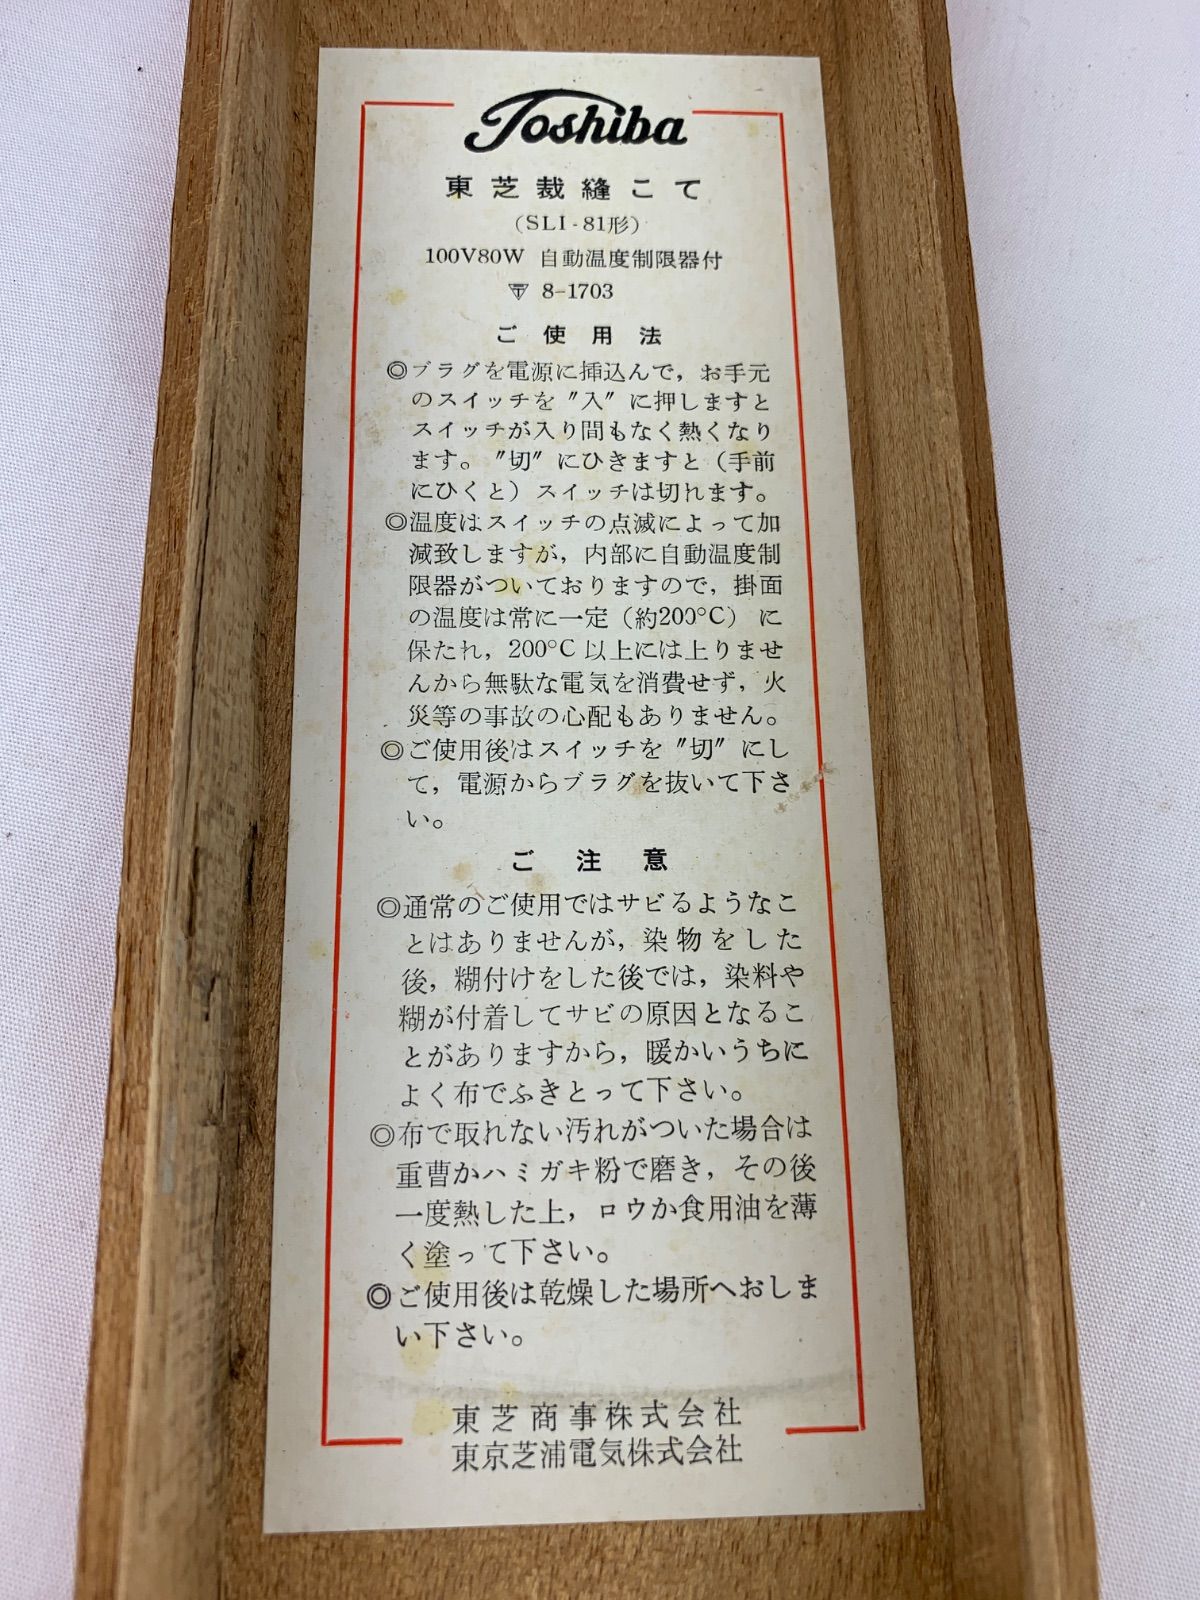 Toshiba
東芝裁縫こて
(SLI-81形)
100V80W 自動温度制限器付
〒 8-1703
ご使用法
◎プラグを電源に挿込んで，お手元
のスイッチを〃入〃に押しますと
スイッチが入り間もなく熱くなり
ます。〃切〃にひきますと（手前
にひくと）スイッチは切れます。
◎温度はスイッチの点滅によって加
減致しますが，内部に自動温度制
限器がついておりますので，掛面
の温度は常に一定（約200°C）に
保たれ，200°C以上には上りませ
んから無駄な電気を消費せず，火
災等の事故の心配もありません。
◎ご使用後はスイッチを〃切〃にし
て，電源からプラグを抜いて下さ
い。
ご注意
◎通常のご使用ではサビるようなこ
とはありませんが，染物をした
後，糊付けをした後では，染料や
糊が付着してサビの原因となるこ
とがありますから，暖かいうちに
よく布でふきとって下さい。
◎布で取れない汚れがついた場合は
重曹かハミガキ粉で磨き，その後
一度熱した上，ロウか食用油を薄
く塗って下さい。
◎ご使用後は乾燥した場所へおしま
い下さい。
東芝商事株式会社
東京芝浦電気株式会社